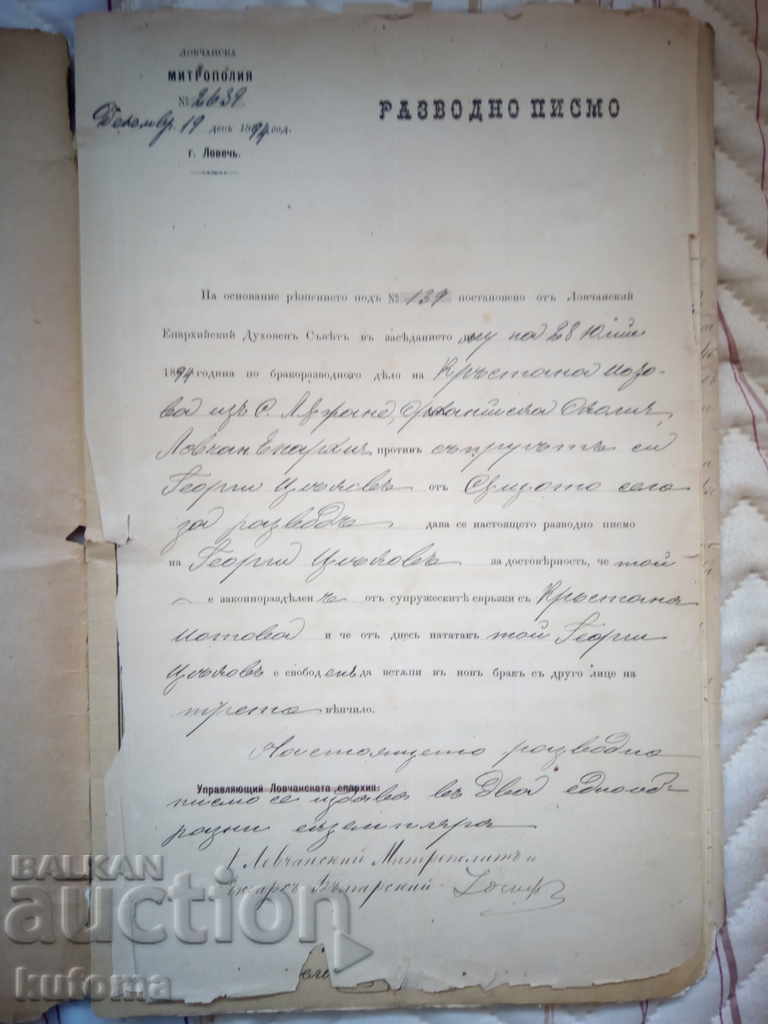 ЛОВЧАНСКА
МИТРОПОЛИЯ
№ 2639
Декемвр. 19 день 1894 год.
г. Ловечь.
РАЗВОДНО ПИСМО
На основание рѣшението подъ № 139 постановено отъ Ловчанский
Епархийский Духовенъ Съвѣтъ въ засѣданието му на 28 Юлий
1894 година по бракоразводното дѣло на Кръстана
изъ с. Оханийска Околия,
Ловчан. Епархия, противъ съпругътъ си
Георги отъ Същото село
за разводъ дава се настоящето разводно писмо
на Георги за достовѣрность, че той
е законноразделенъ отъ супружескитѣ свръзки съ Кръстана
и че отъ днесъ нататакъ той Георги
е свободенъ да встѫпи въ новъ бракъ съ друго лице на
трето вѣнчило.
Настоящето разводно
Управляющий Ловчанската епархия:
писмо се издава въ два еднооб-
разни екземпляра
† Ловчанский Митрополитъ и
Ексархъ Български Йосиф
BALKAN
auction
kufoma